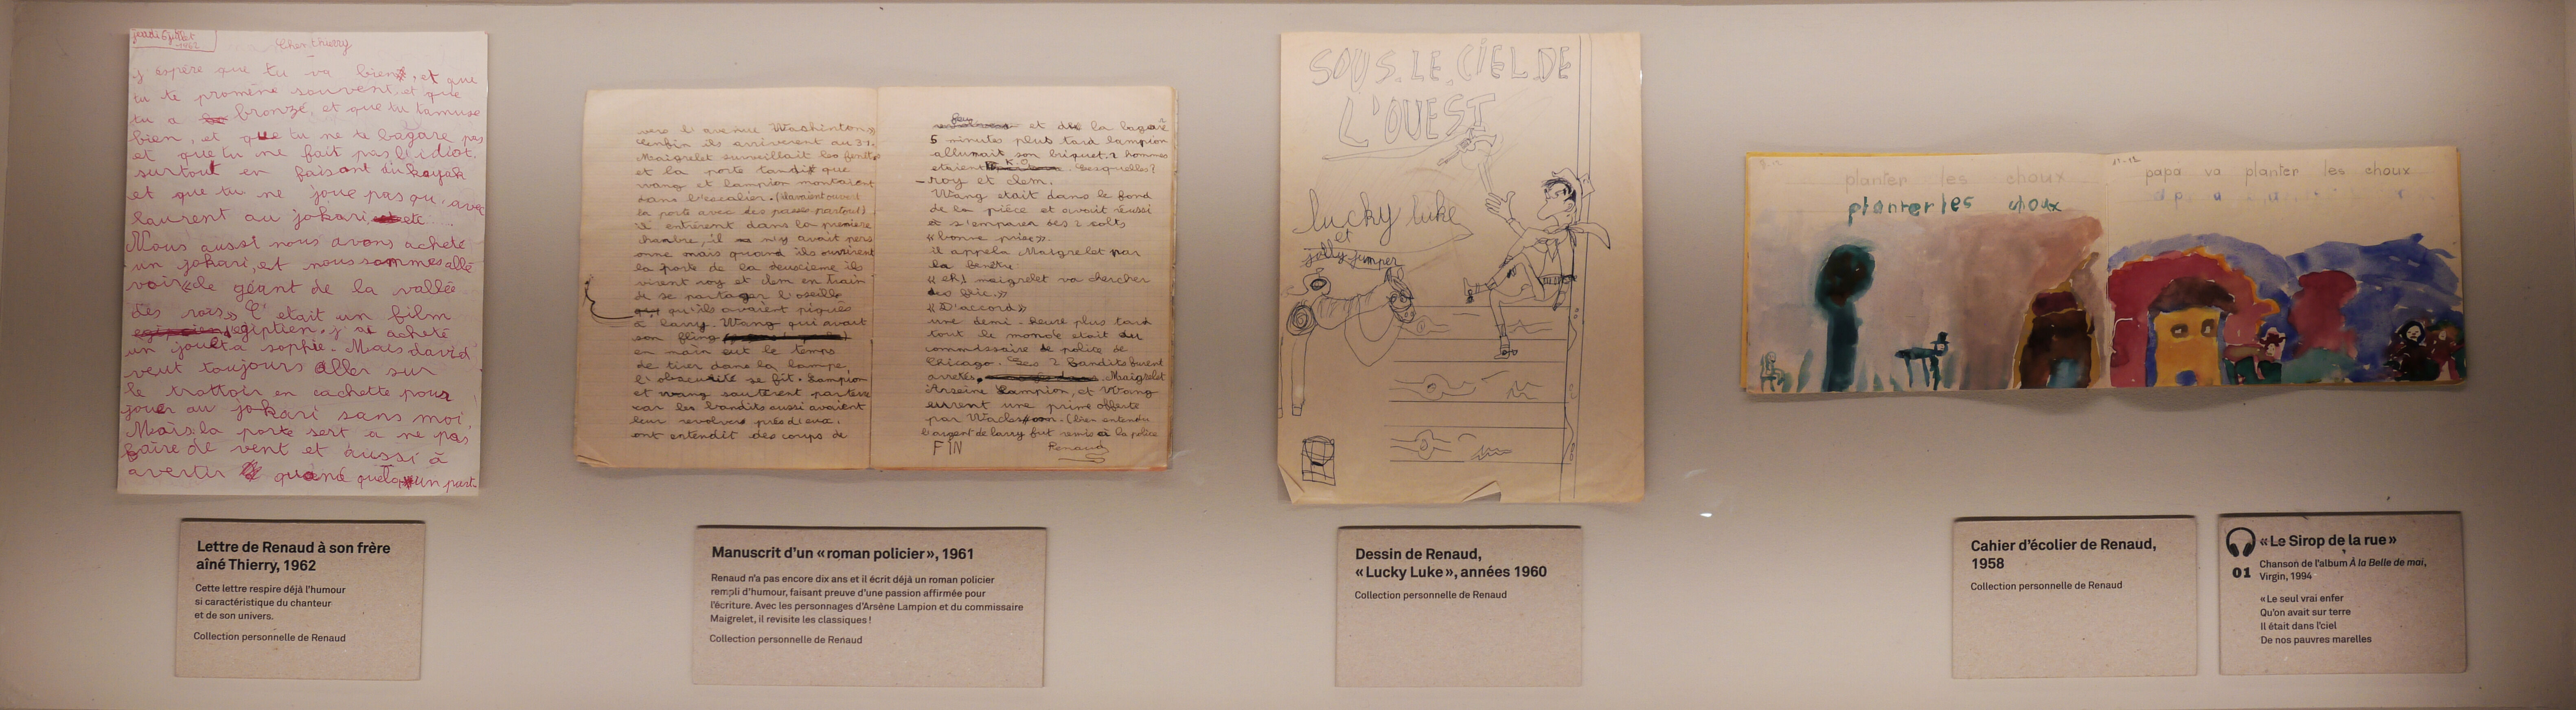 jeudi 5 juillet
1962
Cher thierry
J'éspère que tu va bien, et que
tu te promène souvent, et que
tu a bronzé, et que tu t'amuse
bien, et que tu ne te bagare pas
et que tu ne fait pas l'idiot.
surtout en faisant du kayak
et que tu ne joue pas qu'avec
laurent au jokari etc...
Nous aussi nous avons acheté
un jokari, et nous sommes allé
voir "le géant de la vallée
des rois" C'était un film
d'egiptien, j'ai acheté
un jouet a sophie. Mais david
veut toujours aller sur
le trottoir en cachette pour
jouer au jokari sans moi.
Mais la porte sert a ne pas
faire de vent et aussi à
avertir quand quelqu'un part.
Lettre de Renaud à son frère
aîné Thierry, 1962
Cette lettre respire déjà l'humour
si caractéristique du chanteur
et de son univers.
Collection personnelle de Renaud
vers l'avenue Washinton»
Enfin ils arrivèrent au 37.
Maigrelet surveillait les fenêtres
et la porte tandis que
wang et lampion montaient
dans l'escalier. (ils avaient ouvert
la porte avec des passes partout)
il entrèrent dans la première
chambre, il n'y avait pers
onne mais quand ils ouvrirent
la porte de la deuxième ils
virent roy et clem en train
de se partager l'oseille
qu'ils avaient piqués
à larry. Wang qui avait
son fling
en main eut le temps
de tirer dans la lampe,
l'obscurité se fit. Lampion
et wang sautèrent par terre
car les bandits aussi avaient
leur revolvers près d'eux.
ont entendit des coups de
feu
et de la bagare
5 minutes plus tard lampion
allumait son briquet. 2 hommes
etaient K.O. Lesquelles?
- roy et clem.
Wang etait dans le fond
de la pièce et avait réussi
a s'emparer des 2 colts
«bonne prise».
il appela Maigrelet par
la fenêtre
«eh! maigrelet va chercher
les flic.»
«D'accord»
une demi-heure plus tard
tout le monde etait au
commissaire de police de
Chicago. Les 2 bandits furent
arretés. Maigrelet
Arseine Lampion, et Wang
eurent une prime offerte
par (bien entendu
l'argent de larry fut remis à la police
FIN
Renaud
Manuscrit d'un «roman policier», 1961
Renaud n'a pas encore dix ans et il écrit déjà un roman policier
rempli d'humour, faisant preuve d'une passion affirmée pour
l'écriture. Avec les personnages d'Arsène Lampion et du commissaire
Maigrelet, il revisite les classiques !
Collection personnelle de Renaud
SOUS.LE.CIEL DE
L'OUEST
lucky luke
et
jolly jumper
Dessin de Renaud,
«Lucky Luke», années 1960
Collection personnelle de Renaud
planter les choux
planter les choux
11-12
papa va planter les choux
Cahier d'écolier de Renaud,
1958
Collection personnelle de Renaud
01
«Le Sirop de la rue»
Chanson de l'album À la Belle de mai,
Virgin, 1994
«Le seul vrai enfer
Qu'on avait sur terre
Il était dans l'ciel
De nos pauvres marelles